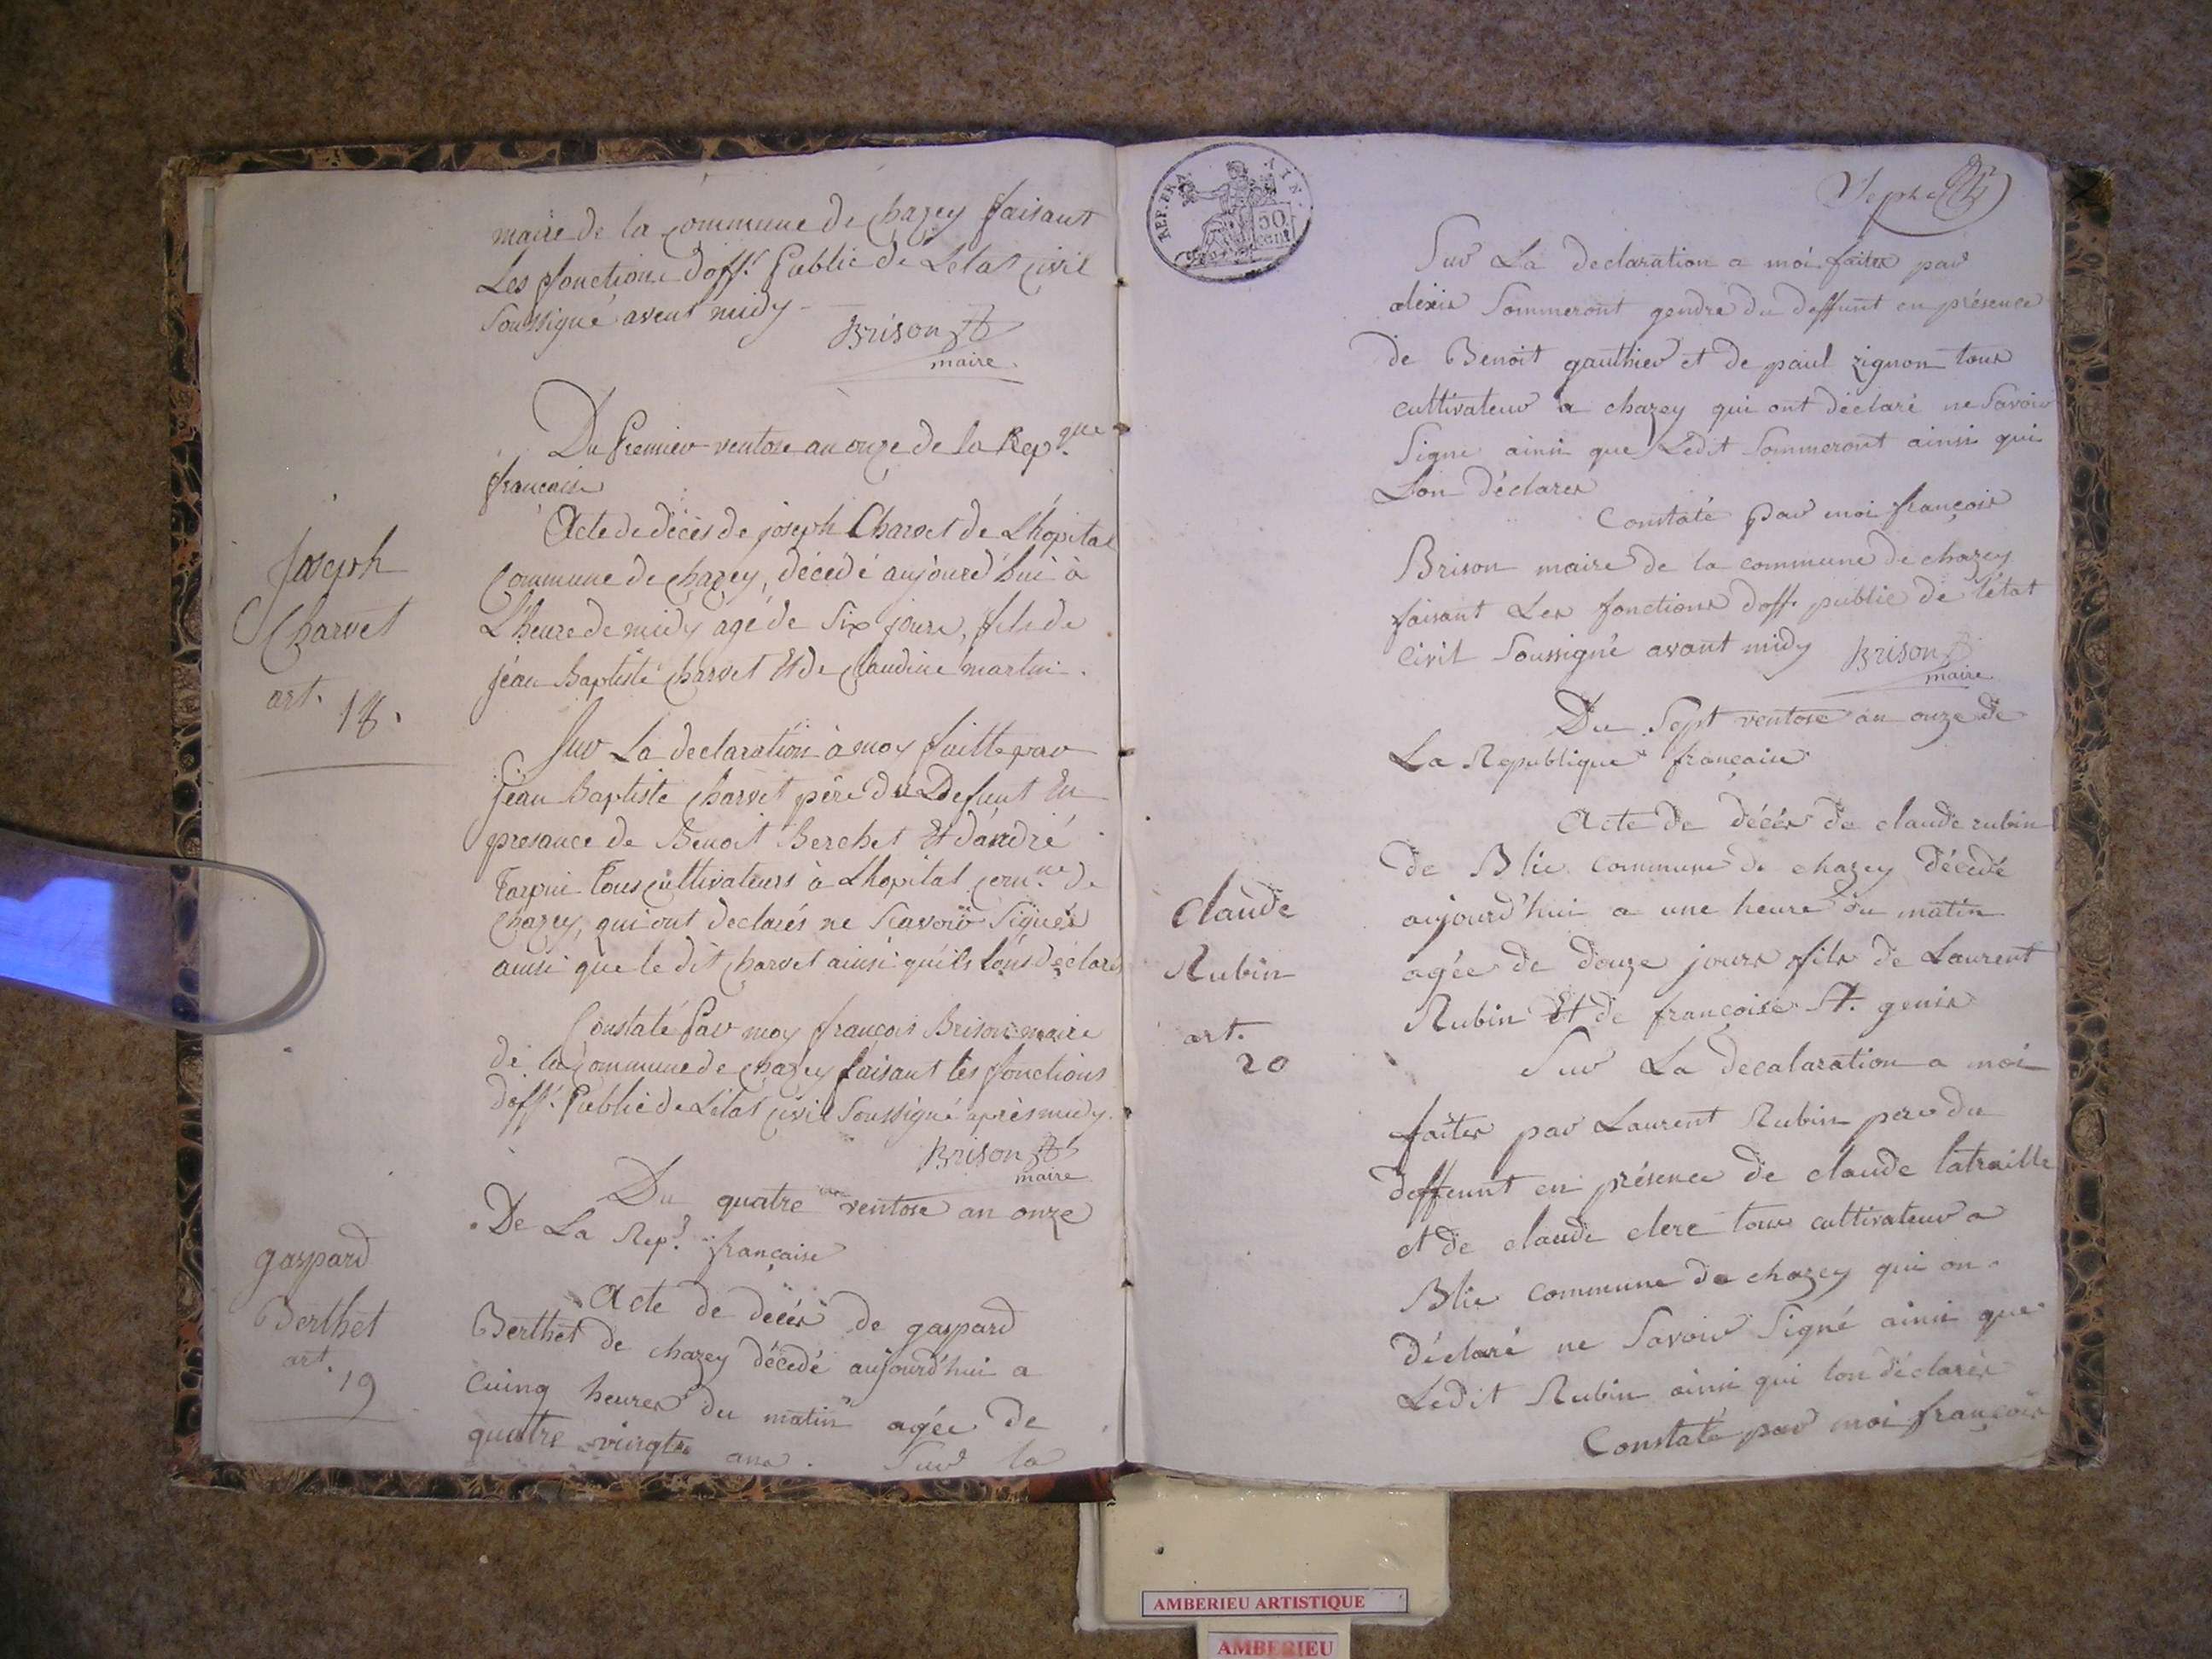 maire de la commune de chazey faisant
Les fonctions d'off.r Public de Létat civil
Soussigné avent midy
Brison
maire
Du Premier ventose an onze de la Rep.que
francaise
Joseph
Charvet
art. 18.
Acte de décès de joseph Charvet de L'hopital
Commune de chazey, décédé aujourd'hui à
L'heure de midy agé de Six jours, fils de
jean Baptiste Charvet Et de Claudine martin.
Sur La declaration à moy faitte par
jean Baptiste charvet père du Defunt En
presance de Benoit Berchet Et d'andré
tous cultivateurs à Lhopital com.ne de
Chazey, qui ont declarés ne Scavoir Signér
ainsi que le dit charvet ainsi qu'ils l'ons déclarés
Constaté Par moy francois Brison maire
de la Commune de chazey faisant les fonctions
d'off.r Public de L'état civil Soussigné après midy.
Brison
maire
Du quatre ventose an onze
De La Rep.e française
gaspard
Berthet
art.
19
Acte de décés de gaspard
Berthet de chazey décedé aujourd'hui a
Cuinq heures du matin agée de
quatre vingts ans. Sur la
REP. FRA.
50
cent
Sept
Sur La declaration a moi faites par
alexis Sommeront gendre du deffunt en présence
de Benoit gauthier et de paul zignon tous
cultivateur a chazey qui ont déclaré ne Savoir
Signe ainsi que Ledit Sommeront ainsi qui
Lon déclarer
Constaté par moi françois
Brison maire de la commune de chazey
faisant Les fonctions d'off. public de l'état
Civil Soussigné avant midy Brison
maire
Du Sept ventose an onze de
La Republique française
Claude
Rubin
art.
20
Acte de décés de claude rubin
de Blie commune de chazey décedé
aujourd'hui a une heure du matin
agée de douze jours fils de Laurent
Rubin Et de françoise St. genis
Sur La decalaration a moi
faites par Laurent Rubin per du
deffeunt en présence de claude latraille
et de claude clere tous cultivateur a
Blie commune de chazey qui on
déclaré ne Savoir Signé ainsi que
Ledit Rubin ainsi qui lon déclarés
Constaté par moi françois
AMBERIEU ARTISTIQUE
AMBERIEU